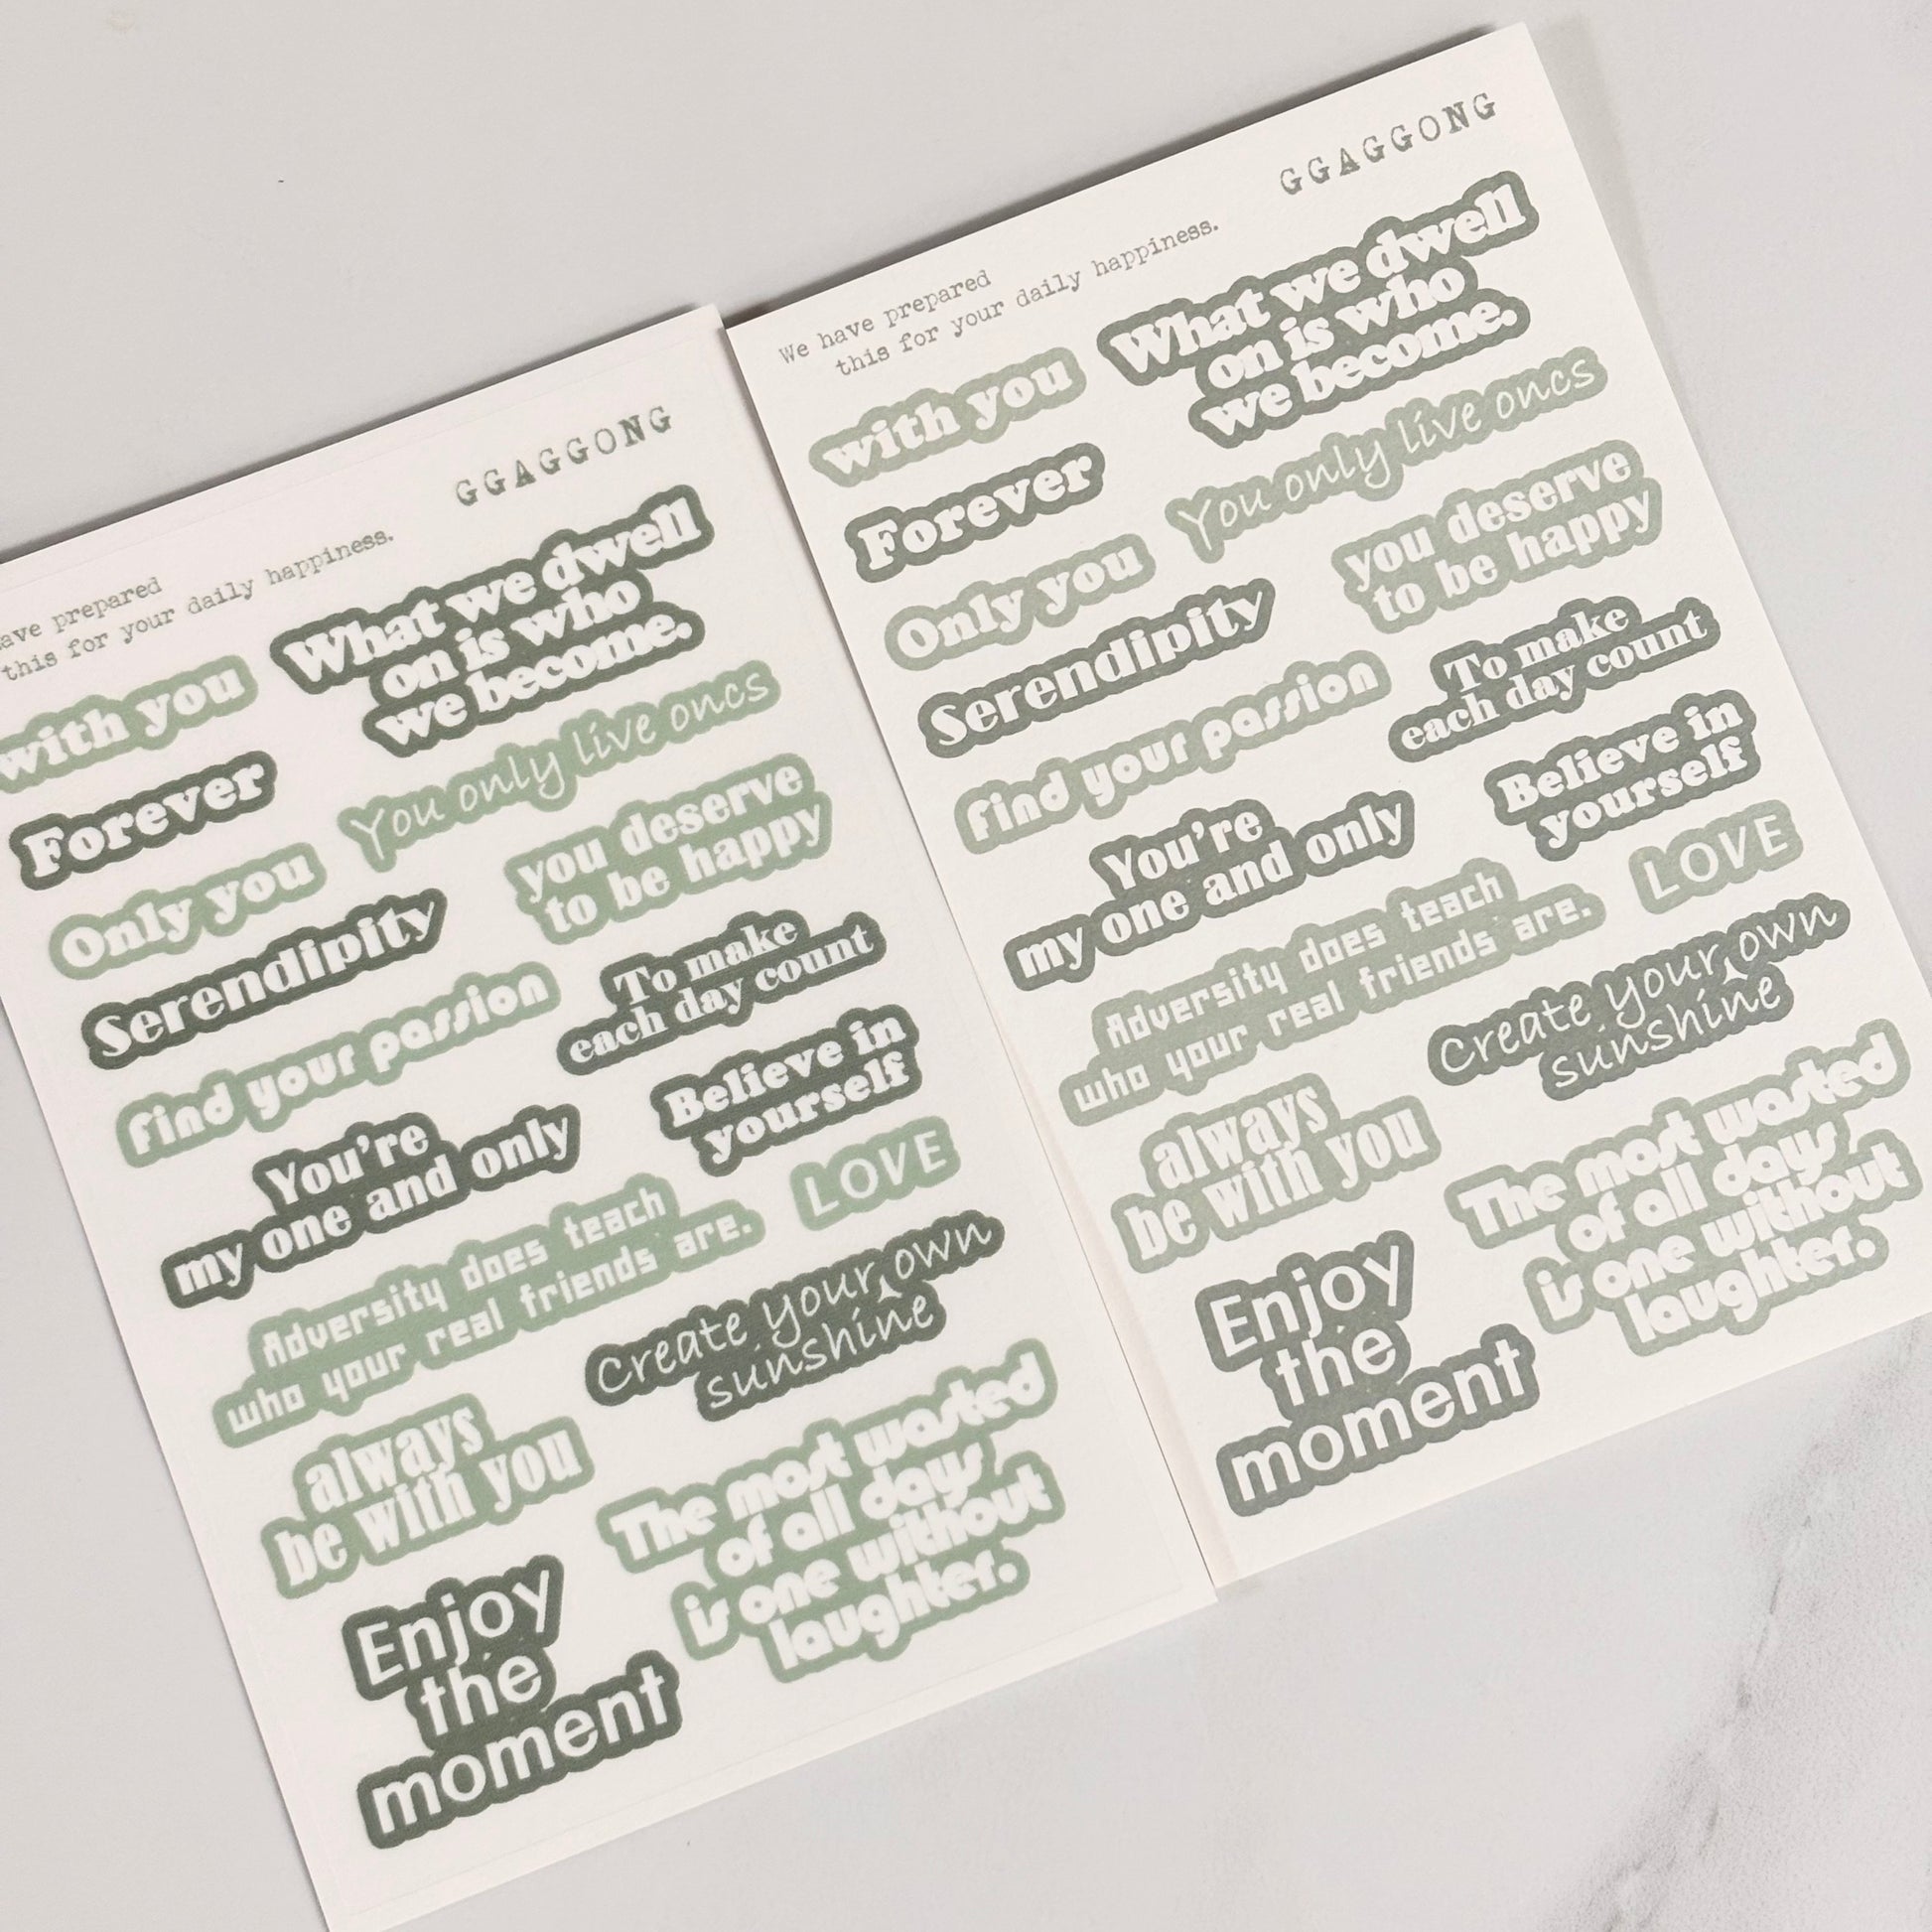 GGAGGONG
ave prepared
this for your daily happiness.
with you
What we dwell
on is who
we become.
Forever
You only live oncs
Only you
you deserve
to be happy
Serendipity
To make
each day count
find your passion
Believe in
yourself
You're
my one and only
LOVE
Adversity does teach
who your real friends are.
Create your own
sunshine
always
be with you
The most wasted
of all days
is one without
laughter.
Enjoy
the
moment
GGAGGONG
We have prepared
this for your daily happiness.
with you
What we dwell
on is who
we become.
Forever
You only live oncs
Only you
you deserve
to be happy
Serendipity
To make
each day count
find your passion
Believe in
yourself
You're
my one and only
LOVE
Adversity does teach
who your real friends are.
Create your own
sunshine
always
be with you
The most wasted
of all days
is one without
laughter.
Enjoy
the
moment